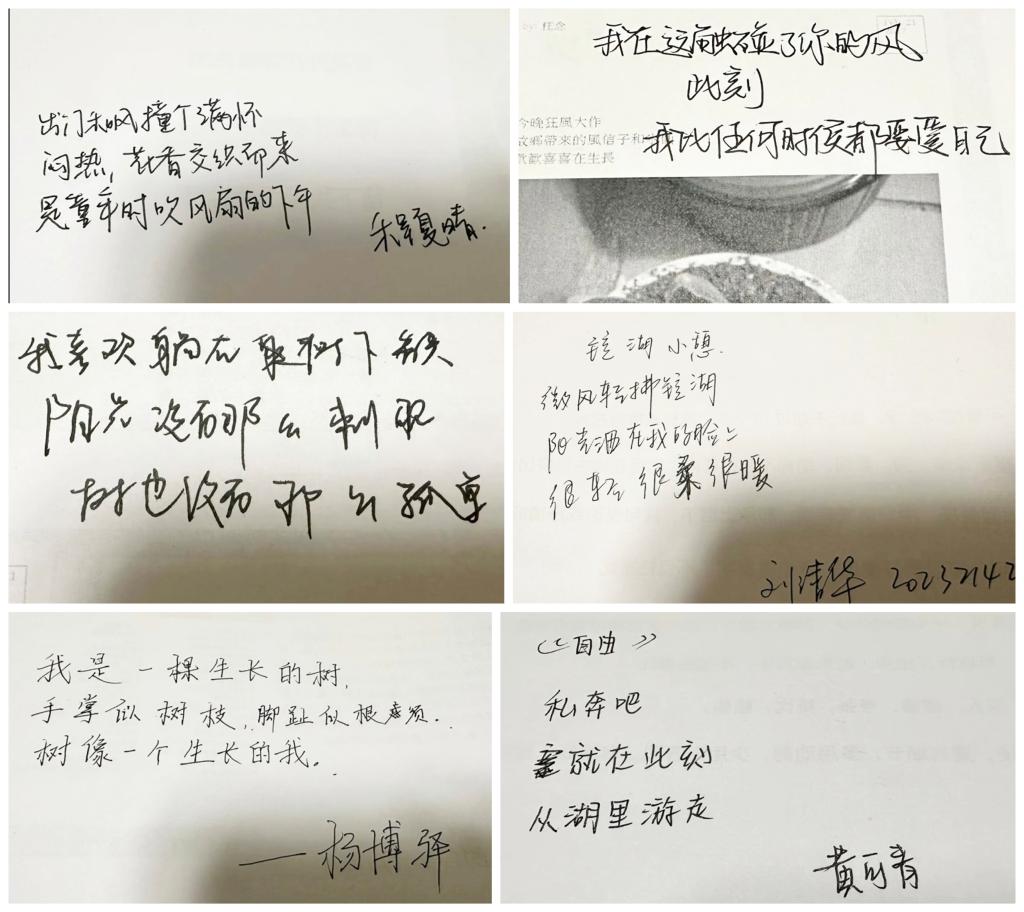 出门和风撞个满怀
闷热，花香交织而来
是童年时吹风扇的下午
夏晴.
by: 任念
我在这触碰了你的风
此刻
我比任何时候都要爱自己
今晚狂風大作
故鄉帶來的風信子和
歡歡喜喜在生長
我喜欢躺在聚树下
阳光没有那么刺眼
树也没有那么孤单
镜湖小憩.
微风轻拂镜湖
阳光洒在我的脸上
很轻很柔很暖
刘清华 20232142
我是一棵生长的树，
手掌似树枝，脚趾似根须.
树像一个生长的我。
——杨博驿
《自由》
私奔吧
就在此刻
从湖里游走
黄可青